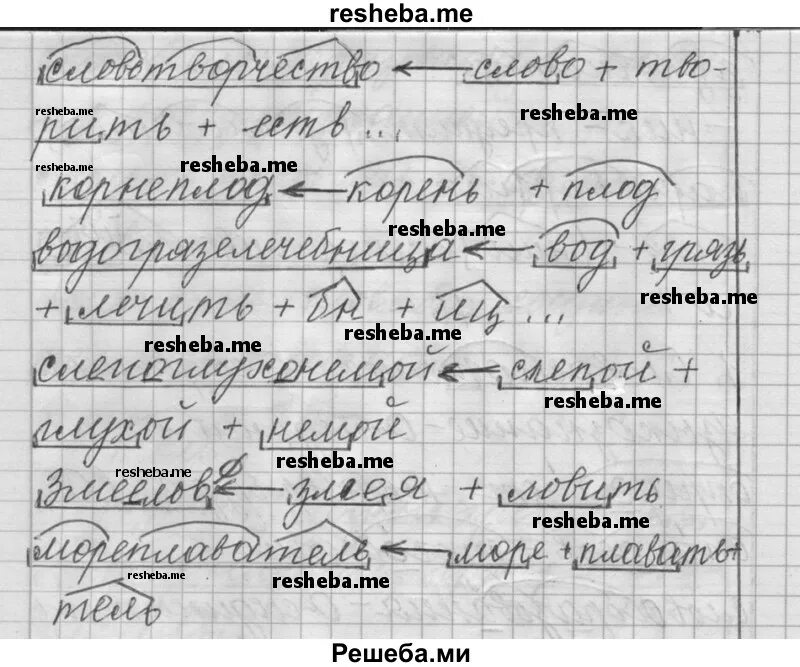 resheba.me
словотворчество ← слово + тво-
resheba.me resheba.me
рить + еств...
resheba.me resheba.me
корнеплод ← корень + плод
resheba.me
водогрязелечебница ← вод + грязь
resheba.me
+ лечить + бн + иц ...
resheba.me resheba.me
слепоглухонемой ← слепой +
resheba.me
глухой + немой
resheba.me resheba.me
Змеелов ← змея + ловить
resheba.me
мореплаватель ← море + плавать +
resheba.me resheba.me
тель
Решеба.ми